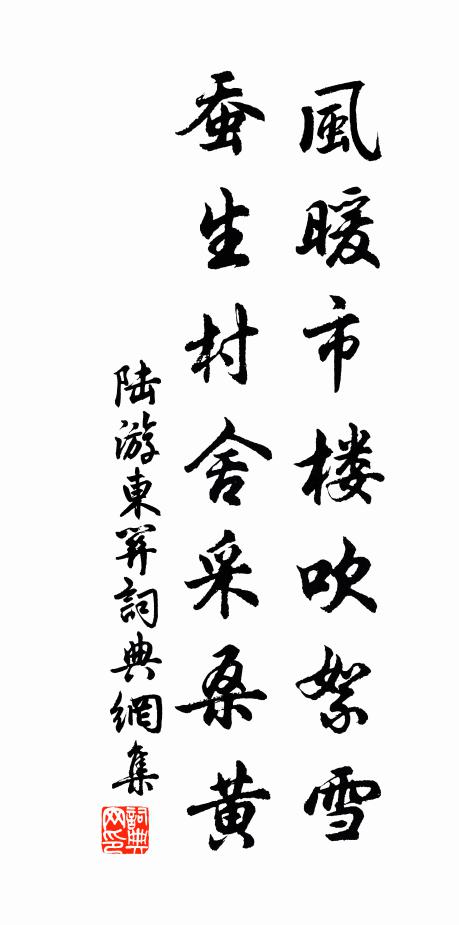 風暖市楼吹絮雪
蚕生村舍采桑黄
陆游東關詞典網集
詞典网印